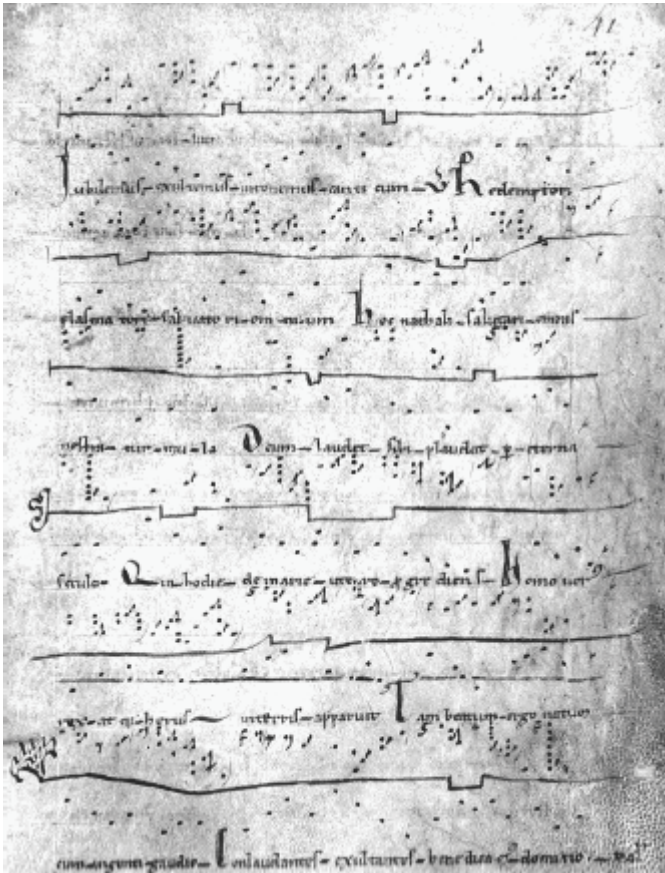 41
Iubilemus exultemus intonemus canticum Redemptori
plasmatori salvatori omnium hoc nathali salutari omnis
nostra turmula Deum laudet sibi plaudat p eterna
secula Qui hodie de marie utero pgrediens homo ver
rex atq herus in terris apparuit Tam beatum ergo natum
cum ingenti gaudio Conlaudantes exultantes benedica domino